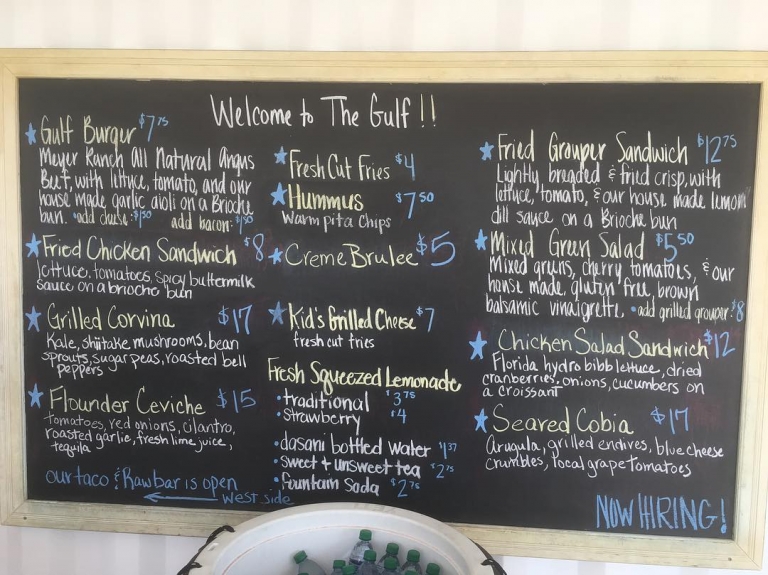 Welcome to The Gulf!!
Gulf Burger $7.75
Meyer Ranch All Natural Angus
Beef, with lettuce, tomato, and our
house made garlic aioli on a Brioche
bun. • add cheese: $1.50 add bacon: $1.50
Fried Chicken Sandwich $8
lettuce, tomatoes, spicy buttermilk
sauce on a brioche bun
Grilled Corvina $17
Kale, shiitake mushrooms, bean
sprouts, sugar peas, roasted bell
peppers
Flounder Ceviche $15
tomatoes, red onions, cilantro,
roasted garlic, fresh lime juice,
tequila
our taco & Raw bar is open
West side
Fresh Cut Fries $4
Hummus $7.50
Warm pita chips
Creme Brulee $5
Kid's Grilled Cheese $7
fresh cut fries
Fresh Squeezed Lemonade
• traditional $3.75
• Strawberry $4
• dasani bottled water $1.37
• sweet & unsweet tea $2.75
• Fountain Soda $2.75
Fried Grouper Sandwich $12.75
Lightly breaded & fried crisp, with
lettuce, tomato, & our house made lemon
dill sauce on a Brioche bun
Mixed Green Salad $5.50
Mixed greens, cherry tomatoes, & our
house made, gluten free brown
balsamic vinaigrette. • add grilled grouper: $8
Chicken Salad Sandwich $12
Florida hydro bibb lettuce, dried
cranberries, onions, cucumbers on
a croissant
Seared Cobia $17
Arugula, grilled endives, blue cheese
crumbles, local grape tomatoes
NOW HIRING!